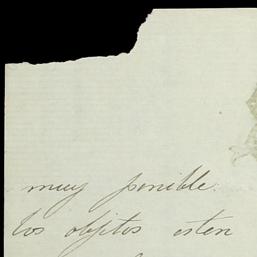 muy penible.
los objetos esten